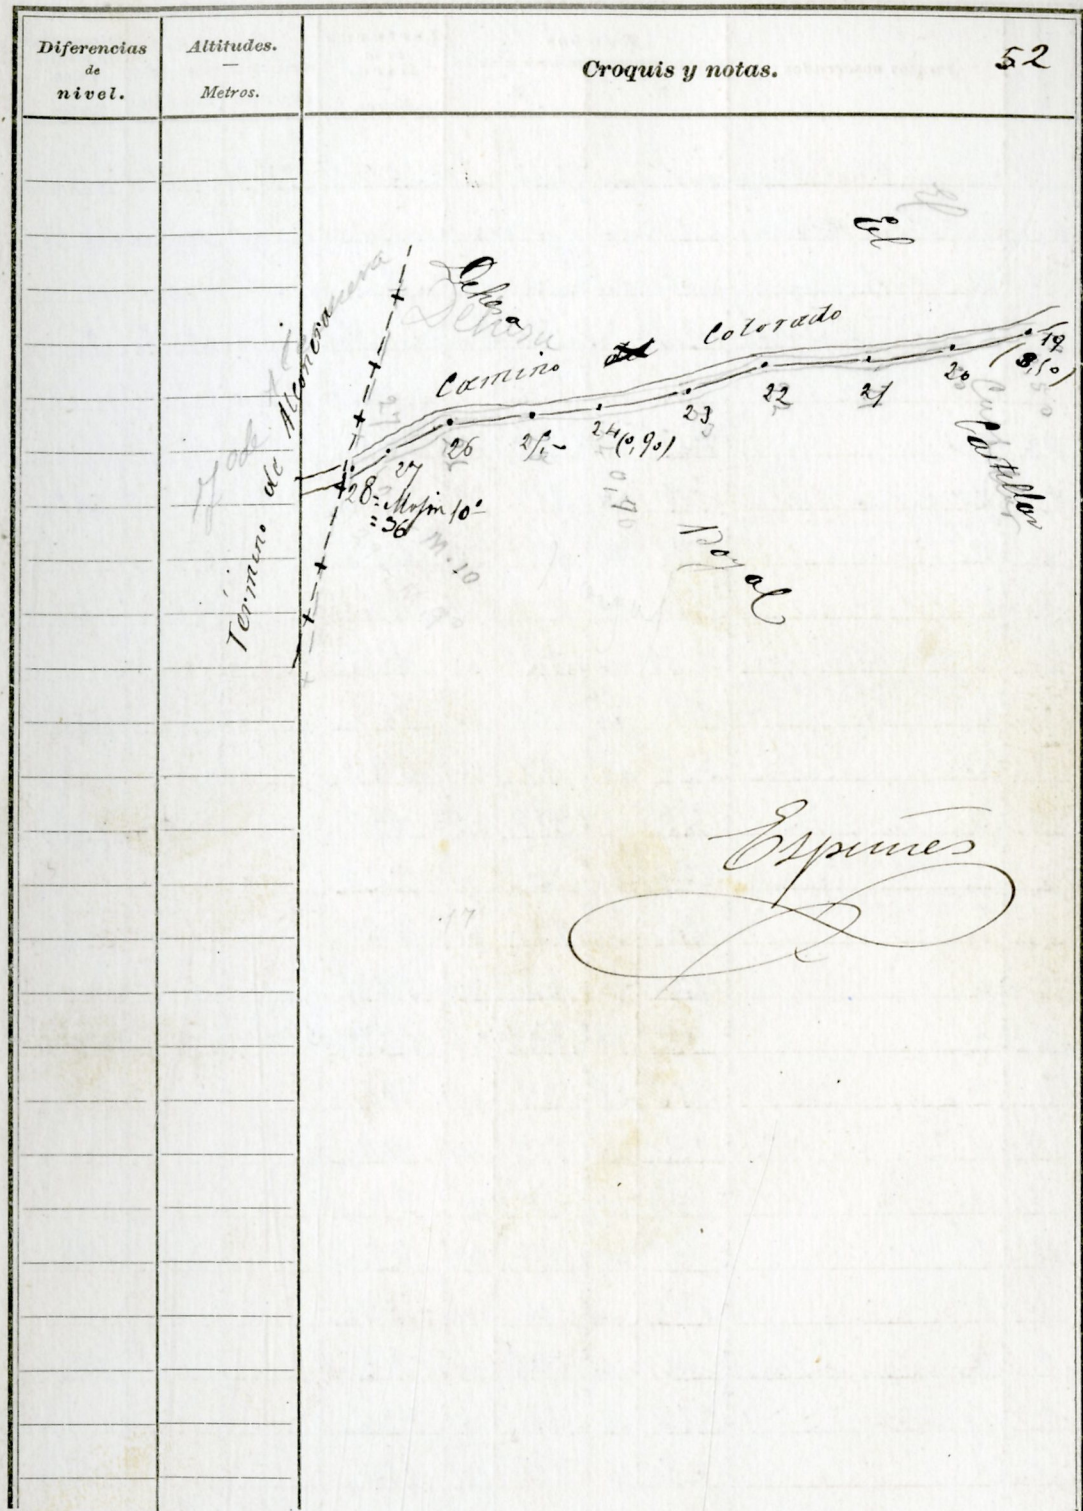 Diferencias
de
nivel.
Altitudes.
Metros.
Croquis y notas.
52
El
Dehesa
Dehesa
Camino del Colorado
19
(8,50)
20
21
22
23
24 (0,90)
25
26
27
28 = Mojón 10º
= 36
M. 10
Castellar
Término de Alconera
Boyal
Espiñes